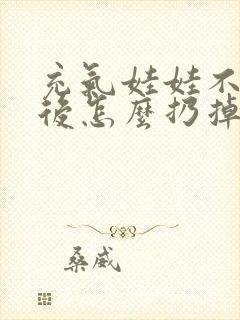 充氣娃娃不
後怎麼扔掉
桑威